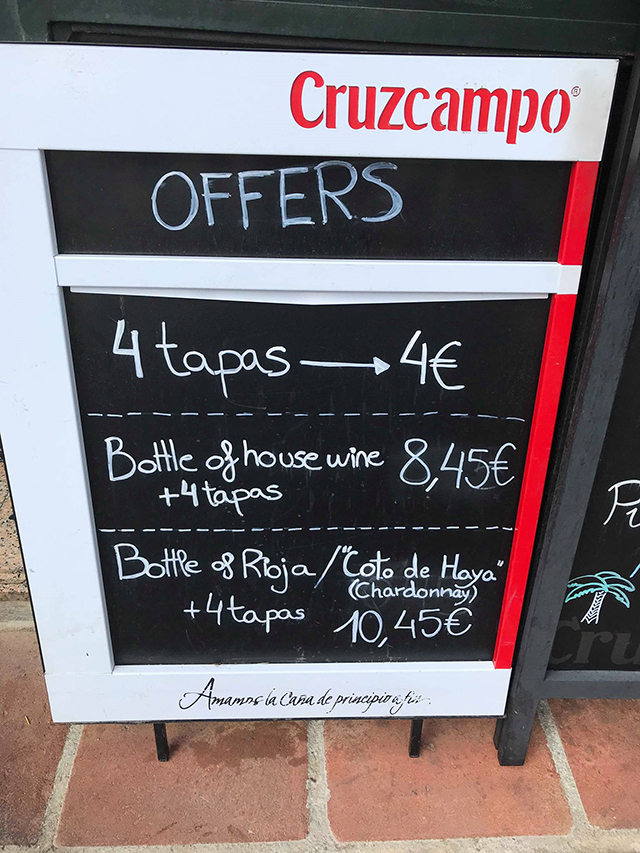 Cruzcampo®
OFFERS
4 tapas → 4€
Bottle of house wine 8,45€
+4 tapas
Bottle of Rioja / "Coto de Haya"
(Chardonnay)
+4 tapas 10,45€
Amamos la Caña de principio a fin.
Pi
Cru